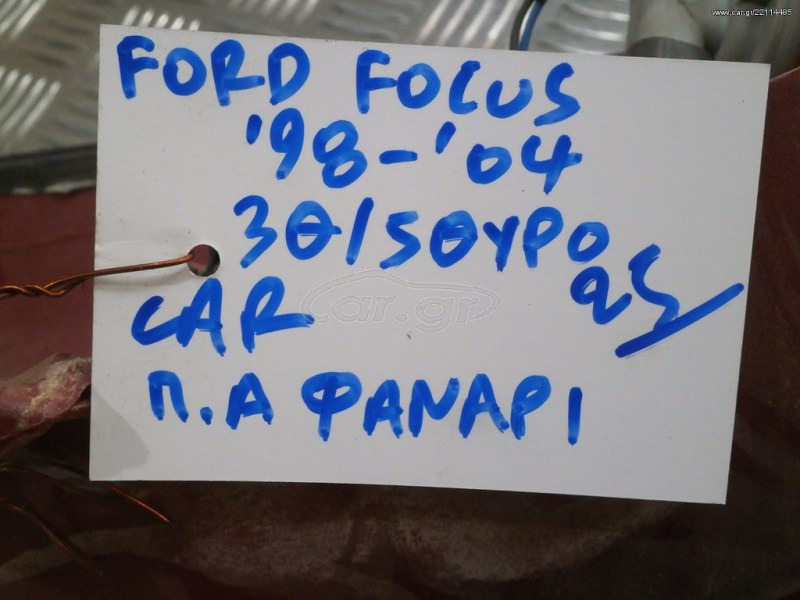 www.car.gr/22114485
FORD FOCUS
'98-'04
3Θ/5ΘΥΡΟ
CAR
car.gr
Π.Α ΦΑΝΑΡΙ